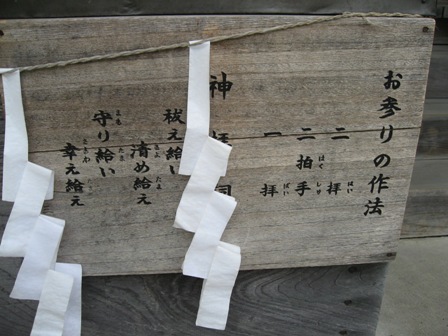 お参りの作法
二拝
はい
二拍手
はくしゅ
一拝
ぱい
神拝詞
祓え給い
清め給え
きよ たま
守り給い
まも たま
幸え給え
さきわ